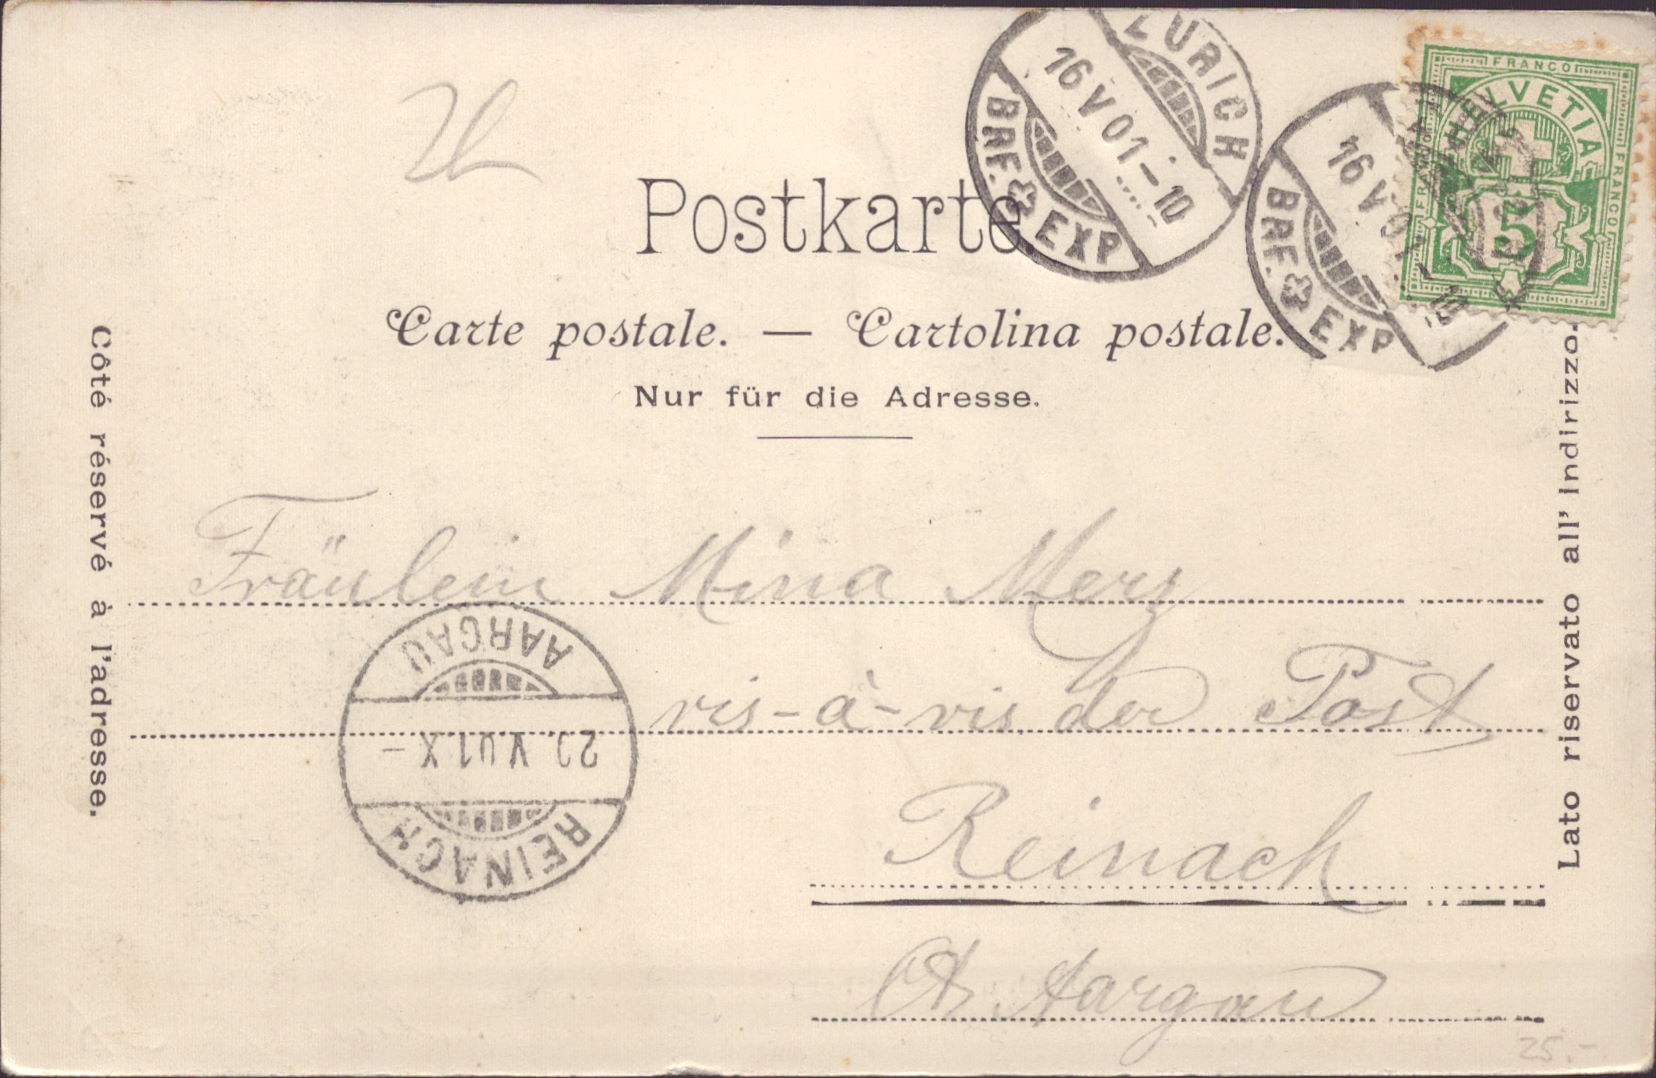 ZÜRICH
16 V 01 - 10
BRF. EXP
16 V 01
BRF. EXP
FRANCO
HELVETIA
FRANCO
FRANCO
5
Postkarte
Carte postale. — Cartolina postale.
Nur für die Adresse.
Côté réservé à l'adresse.
Lato riservato all' indirizzo.
Fräulein Mina Merz
vis-à-vis der Post
Reinach
Kt. Aargau
AARGAU
V.01.X-
REINACH
25.-